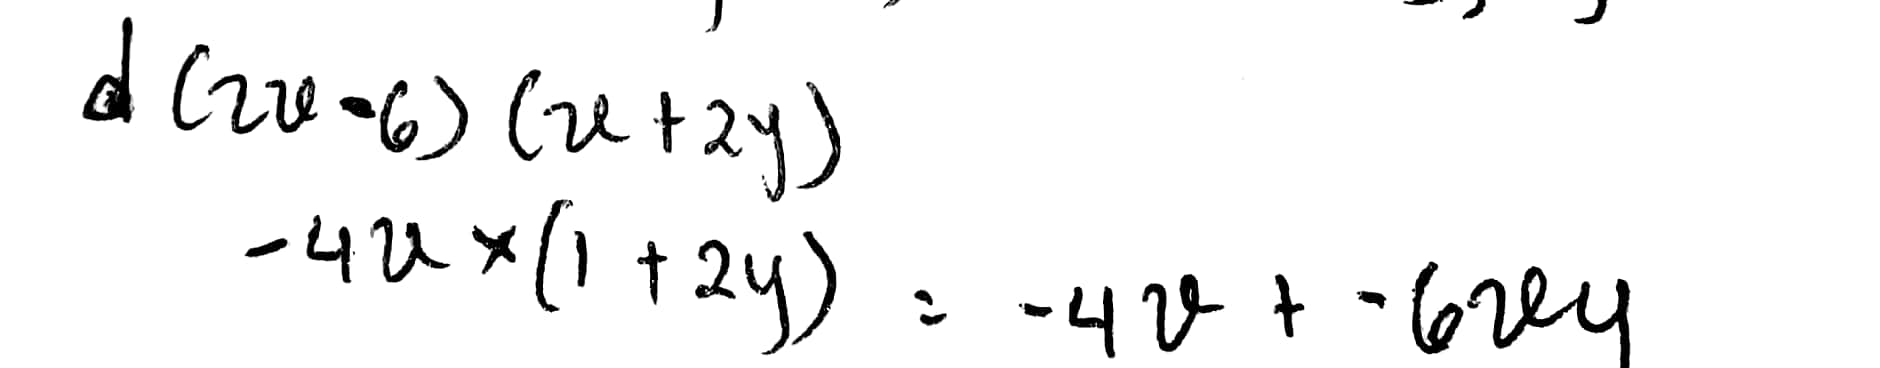 d (2x-6) (x+2y)
-4x × (1+2y) = -4x + -6xy